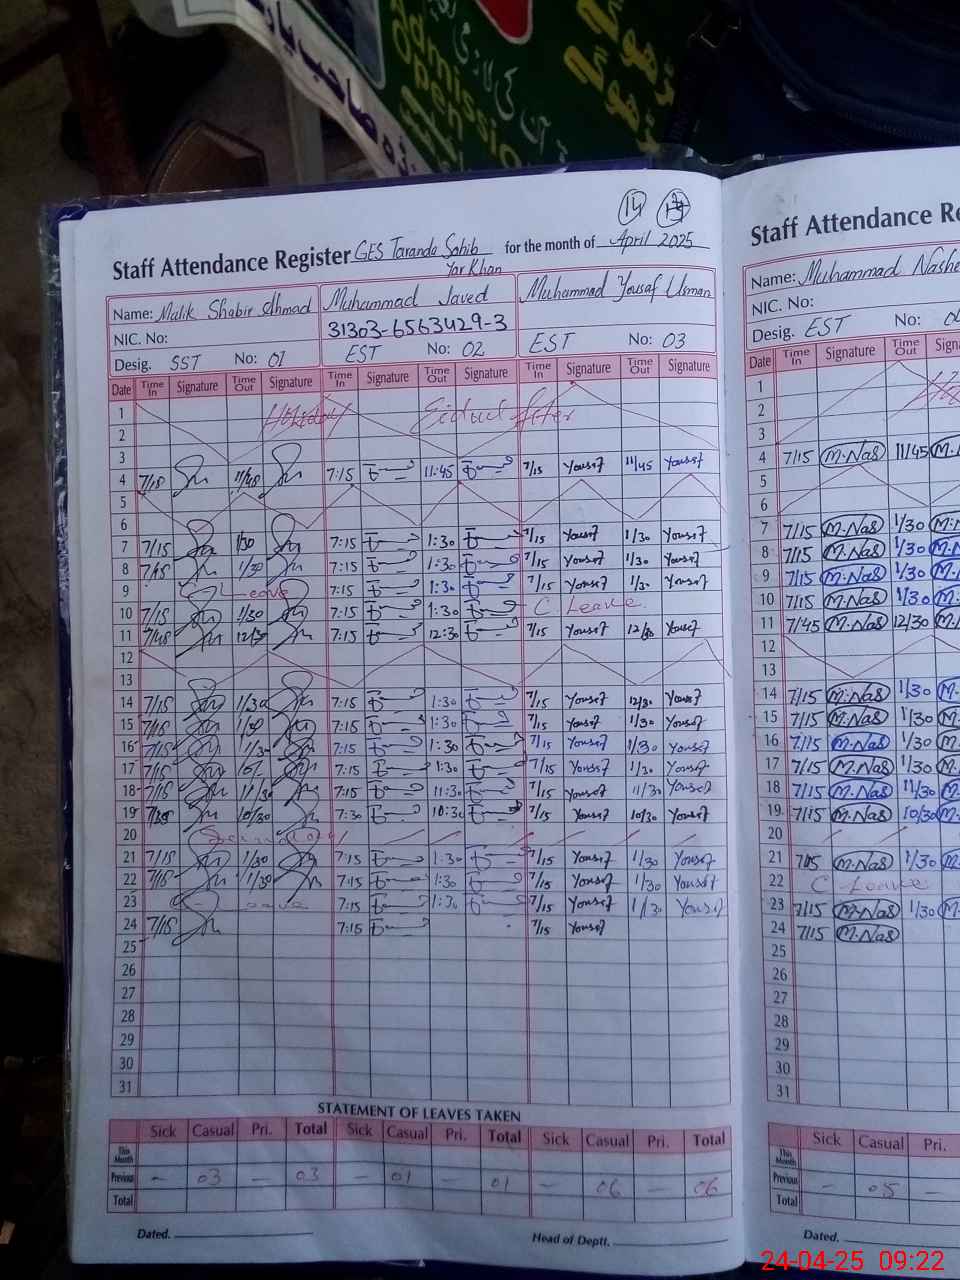 Admission
Open
14
Staff Attendance Register GES Taranda Sahib for the month of April 2025
Yar Khan
Name: Malik Shabir Ahmad Muhammad Javed Muhammad Yousaf Usman
NIC. No: 31303-6563429-3
Desig. SST No: 01 EST No: 02 EST No: 03
Date Time In Signature Time Out Signature Time In Signature Time Out Signature Time In Signature Time Out Signature
1 Holiday Eidul fiter
2
3
4 7/15 11/45 7:15 11:45 7/15 Yousaf 11/45 Yousaf
5
6
7 7/15 1/30 7:15 1:30 7/15 Yousaf 1/30 Yousaf
8 7/15 1/30 7:15 1:30 7/15 Yousaf 1/30 Yousaf
9 Leave 7:15 1:30 7/15 Yousaf 1/30 Yousaf
10 7/15 1/30 7:15 1:30 C Leave
11 12/30 7:15 12:30 7/15 Yousaf 12/30 Yousaf
12
13
14 7/15 1/30 7:15 1:30 7/15 Yousaf 12/30 Yousaf
15 7/15 1/30 7:15 1:30 7/15 Yousaf 1/30 Yousaf
16 7/15 1/30 7:15 1:30 7/15 Yousaf 1/30 Yousaf
17 7/15 7:15 1:30 7/15 Yousaf 1/30 Yousaf
18 7/15 11/30 7:15 11:30 7/15 Yousaf 11/30 Yousaf
19 10/30 7:30 10:30 7/15 Yousaf 10/30 Yousaf
20
21 7/15 1/30 7:15 1:30 7/15 Yousaf 1/30 Yousaf
22 7/15 1/30 7:15 1:30 7/15 Yousaf 1/30 Yousaf
23 Leave 7:15 1:30 7/15 Yousaf 1/30 Yousaf
24 7/15 7:15 7/15 Yousaf
25
26
27
28
29
30
31
STATEMENT OF LEAVES TAKEN
Sick Casual Pri. Total Sick Casual Pri. Total Sick Casual Pri. Total
This Month
Previous – 03 – 03 – 01 – 01 – 06 – 06
Total
Dated. Head of Deptt.
Staff Attendance Re
Name: Muhammad Nashe
NIC. No:
Desig. EST No:
Date Time In Signature Time Out
1
2
3
4 7/15 M.Nas 11/45
5
6
7 7/15 M.Nas 1/30
8 7/15 M.Nas 1/30
9 7/15 M.Nas 1/30
10 7/15 M.Nas 1/30
11 7/45 M.Nas 12/30
12
13
14 7/15 M.Nas 1/30
15 7/15 M.Nas 1/30
16 7/15 M.Nas 1/30
17 7/15 M.Nas 1/30
18 7/15 M.Nas 11/30
19 7/15 M.Nas 10/30
20
21 7/15 M.Nas 1/30
22 C Leave
23 7/15 M.Nas 1/30
24 7/15 M.Nas
25
26
27
28
29
30
31
Sick Casual Pri.
This Month
Previous – 05 –
Total
Dated.
24-04-25 09:22